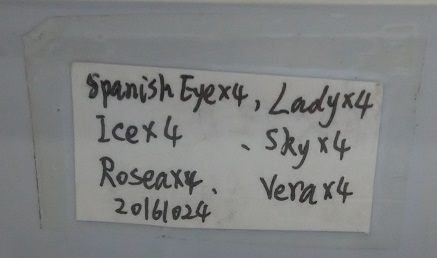 Spanish Eyex4, Ladyx4
Icex4 、Skyx4
Roseax4、 Verax4
20161024